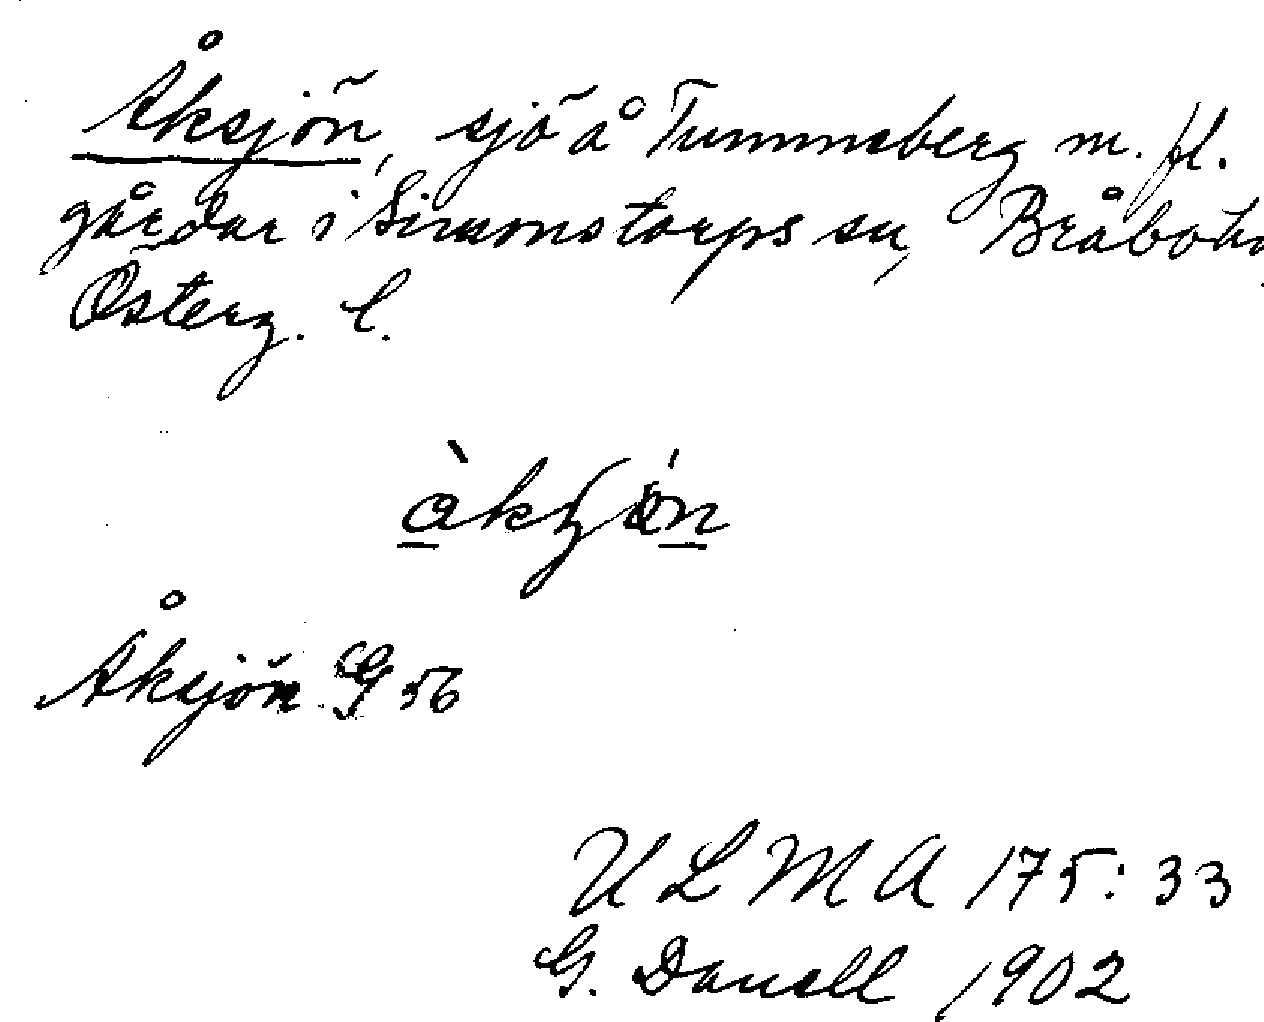 Åksjön, sjö å Tummeberg m. fl.
gårdar i Simonstorps sn, Bråbohd
Österg. l.
Åksjön G 56
ULMA 175:33
G. Danell 1902